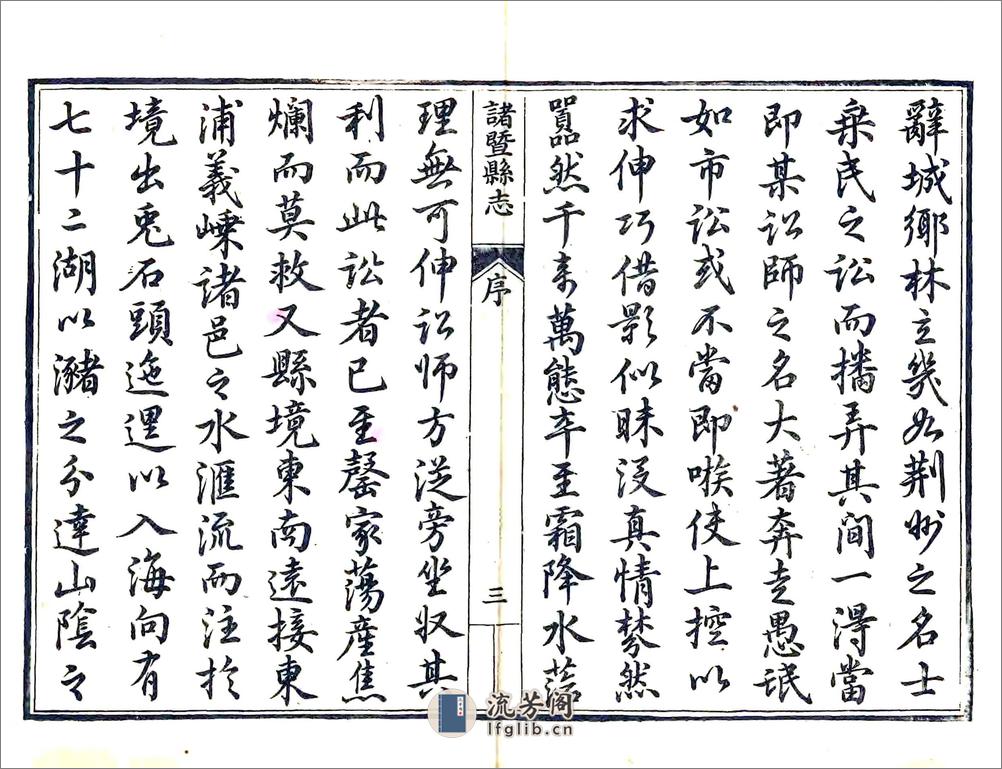 辭城鄉林立幾如荆妙之名士
棄民之訟而播弄其间一得當
即某訟師之名大著奔走愚氓
如市訟或不當即嗾使上控以
求伸巧借影似昧没真情棼然
嚣然千奇萬態卒至霜降水落
諸暨縣志
序
三
理無可伸訟师方从旁坐收其
利而此訟者已至罄家蕩產焦
爛而莫救又縣境東南遠接東
浦義嵊諸邑之水滙流而注於
境出兎石頭迤邐以入海向有
七十二湖以瀦之分達山陰之
流芳阁
lfglib.cn